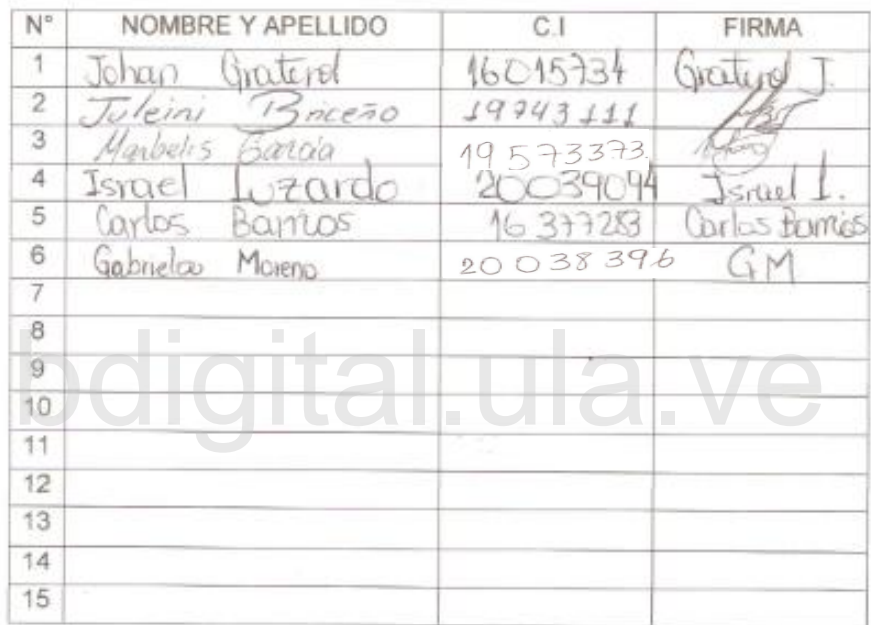 N° NOMBRE Y APELLIDO C.I FIRMA
1 Johan Graterol 16015734 Graterol J.
2 Juleini Briceño 19743111
3 Marbelis García 19 573373.
4 Israel Luzardo 20039094 Israel L.
5 Carlos Barrios 16 377283 Carlos Barrios
6 Gabriela Moreno 20 038 396 GM
7
8
bdigital.ula.ve
9
10
11
12
13
14
15